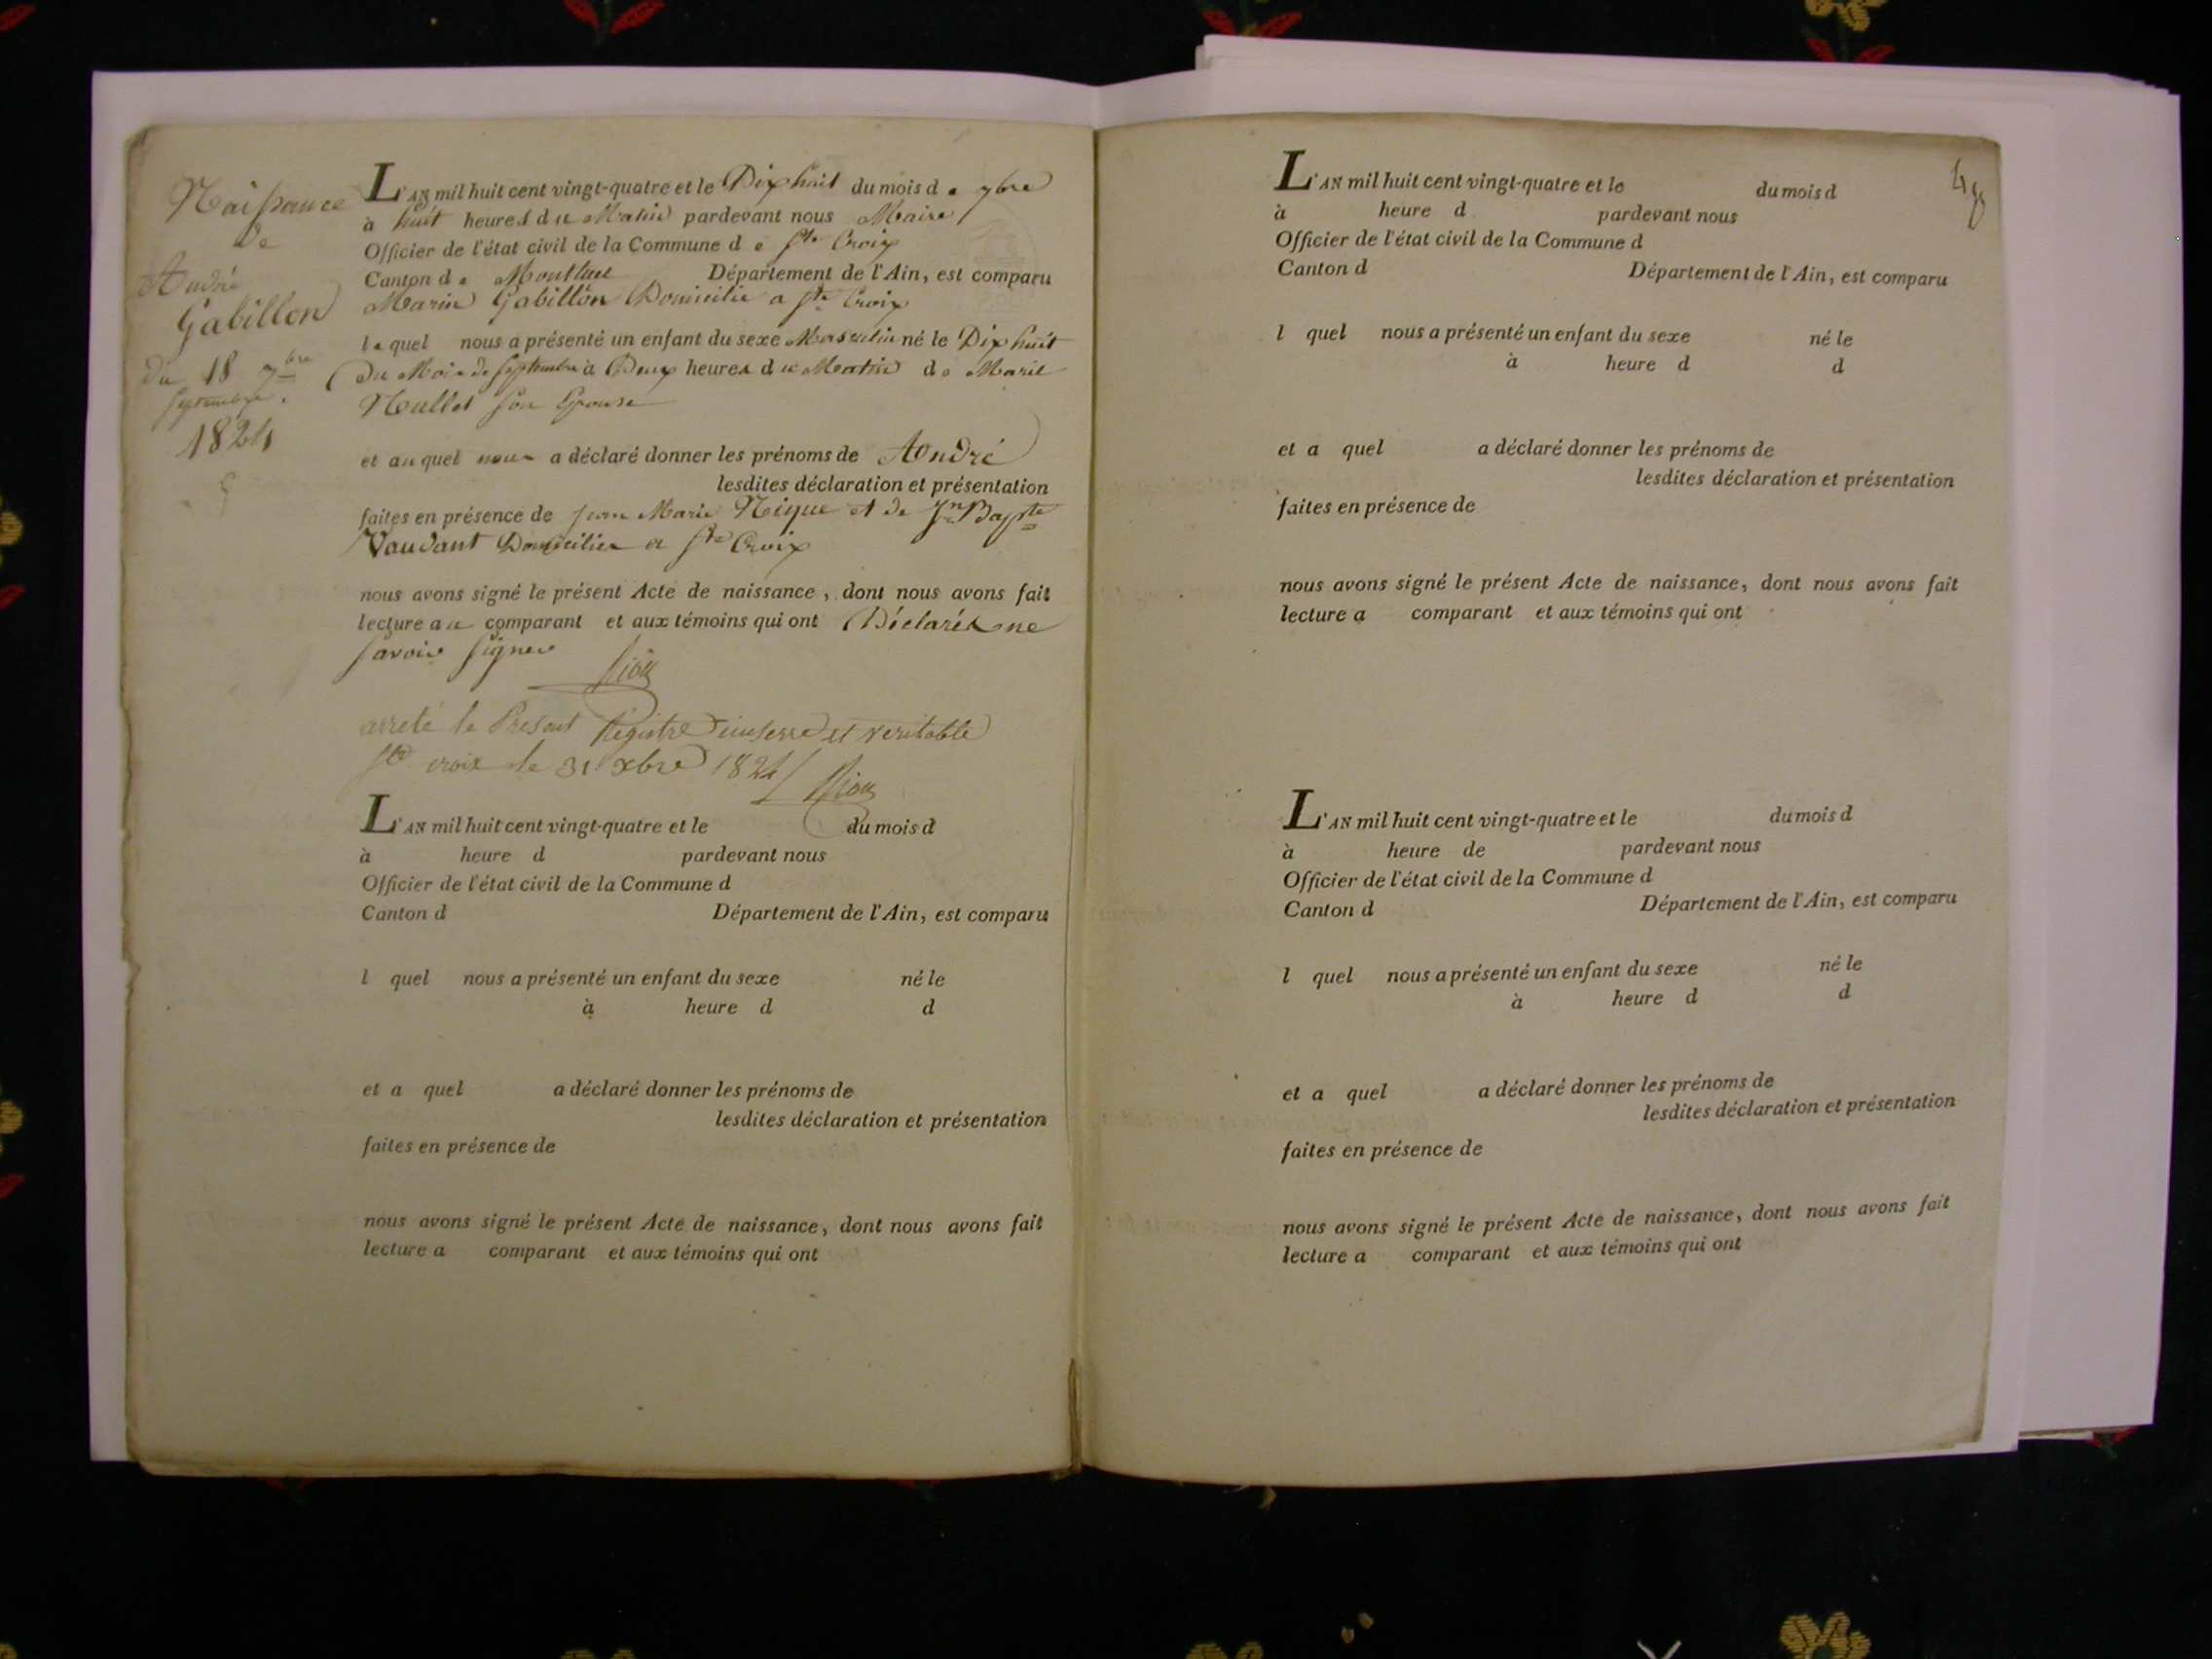 Naissance
de
André
Gabillon
du 18 7bre
septembre.
1824
L'AN mil huit cent vingt-quatre et le Dix huit du mois de 7bre
à huit heures du Matin pardevant nous Maire
Officier de l'état civil de la Commune de Ste Croix
Canton de Montluel Département de l'Ain, est comparu
Marin Gabillon Domicilié a Ste Croix
lequel nous a présenté un enfant du sexe Masculin né le Dix huit
du Mois de Septembre à Deux heures du Matin de Marie
Nullet son Epouse
et auquel nous a déclaré donner les prénoms de André
lesdites déclaration et présentation
faites en présence de jean Marie Nique et de Jn Bapte
Vaudant Domicilies a Ste Croix
nous avons signé le présent Acte de naissance, dont nous avons fait
lecture au comparant et aux témoins qui ont Déclarés ne
savoir signer
arreté le Present Régistre et veritable
Ste croix le 31 xbre 1824
L'AN mil huit cent vingt-quatre et le du mois d
à heure d pardevant nous
Officier de l'état civil de la Commune d
Canton d Département de l'Ain, est comparu
l quel nous a présenté un enfant du sexe né le
à heure d d
et a quel a déclaré donner les prénoms de
lesdites déclaration et présentation
faites en présence de
nous avons signé le présent Acte de naissance, dont nous avons fait
lecture a comparant et aux témoins qui ont
L'AN mil huit cent vingt-quatre et le du mois d
à heure d pardevant nous
Officier de l'état civil de la Commune d
Canton d Département de l'Ain, est comparu
l quel nous a présenté un enfant du sexe né le
à heure d d
et a quel a déclaré donner les prénoms de
lesdites déclaration et présentation
faites en présence de
nous avons signé le présent Acte de naissance, dont nous avons fait
lecture a comparant et aux témoins qui ont
L'AN mil huit cent vingt-quatre et le du mois d
à heure de pardevant nous
Officier de l'état civil de la Commune d
Canton d Département de l'Ain, est comparu
l quel nous a présenté un enfant du sexe né le
à heure d d
et a quel a déclaré donner les prénoms de
lesdites déclaration et présentation
faites en présence de
nous avons signé le présent Acte de naissance, dont nous avons fait
lecture a comparant et aux témoins qui ont